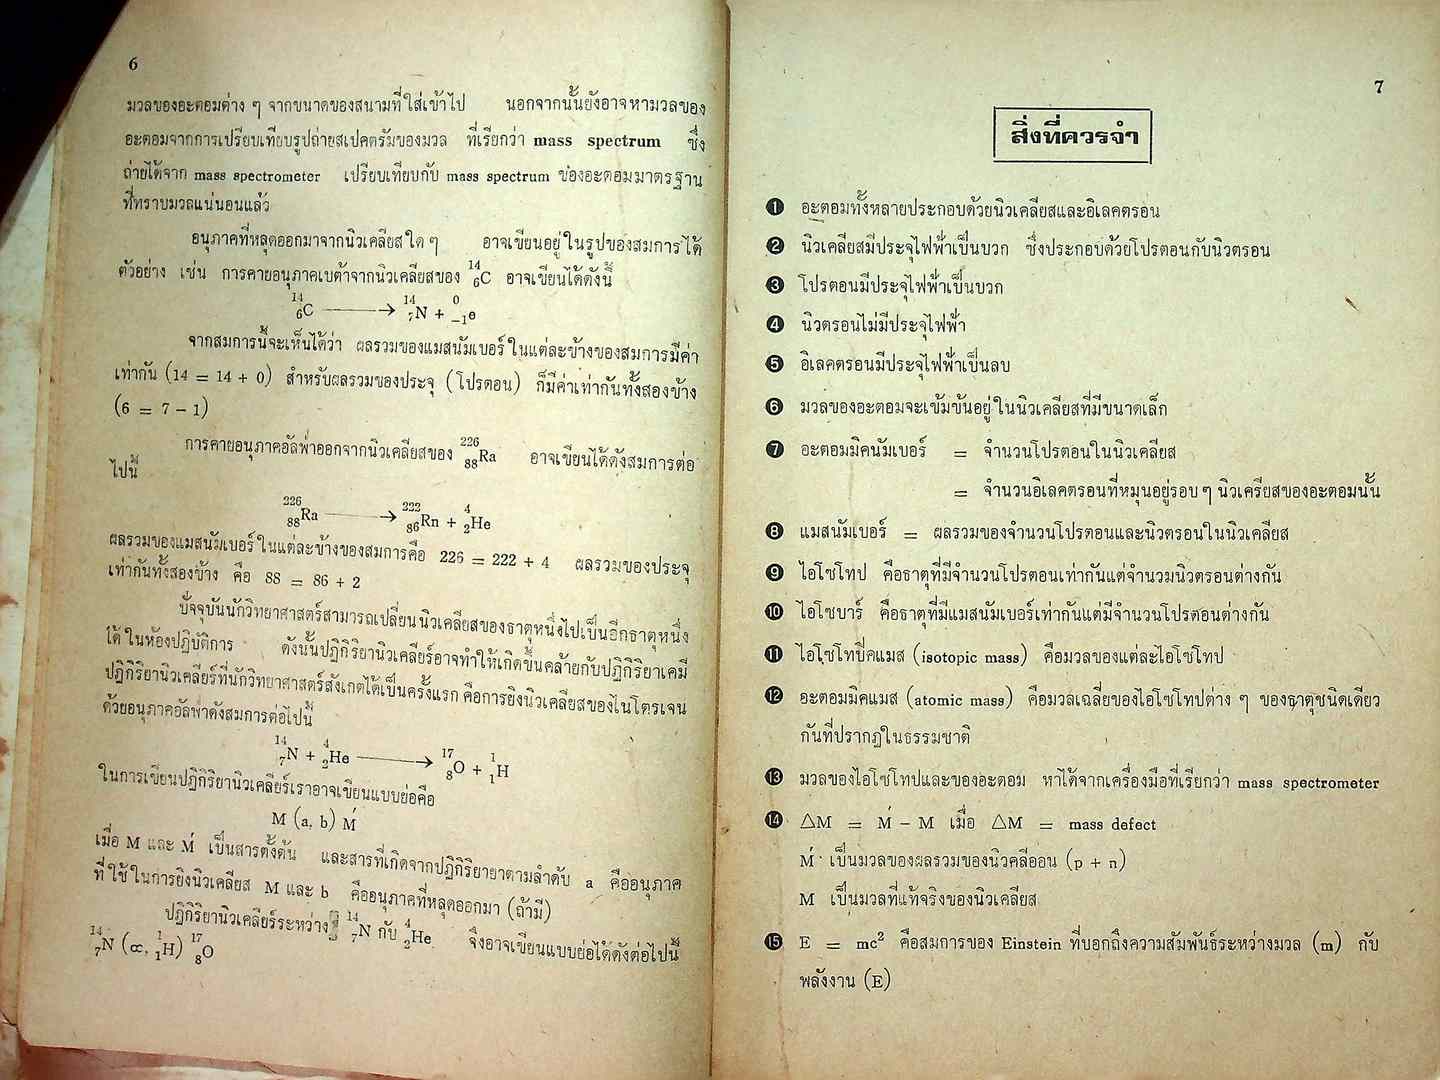 6
มวลของอะตอมต่าง ๆ จากขนาดของสนามที่ใส่เข้าไป นอกจากนั้นยังอาจหามวลของ
อะตอมจากการเปรียบเทียบรูปถ่ายสเปคตรัมของมวล ที่เรียกว่า mass spectrum ซึ่ง
ถ่ายได้จาก mass spectrometer เปรียบเทียบกับ mass spectrum ของอะตอมมาตรฐาน
ที่ทราบมวลแน่นอนแล้ว
อนุภาคที่หลุดออกมาจากนิวเคลียสใด ๆ อาจเขียนอยู่ในรูปของสมการได้
ตัวอย่าง เช่น การคายอนุภาคเบต้าจากนิวเคลียสของ ¹⁴₆C อาจเขียนได้ดังนี้
¹⁴₆C ⟶ ¹⁴₇N + ⁰₋₁e
จากสมการนี้จะเห็นได้ว่า ผลรวมของแมสนัมเบอร์ในแต่ละข้างของสมการมีค่า
เท่ากัน (14 = 14 + 0) สำหรับผลรวมของประจุ (โปรตอน) ก็มีค่าเท่ากันทั้งสองข้าง
(6 = 7 – 1)
การคายอนุภาคอัลฟ่าออกจากนิวเคลียสของ ²²⁶₈₈Ra อาจเขียนได้ดังสมการต่อ
ไปนี้
²²⁶₈₈Ra ⟶ ²²²₈₆Rn + ⁴₂He
ผลรวมของแมสนัมเบอร์ในแต่ละข้างของสมการคือ 226 = 222 + 4 ผลรวมของประจุ
เท่ากันทั้งสองข้าง คือ 88 = 86 + 2
ปัจจุบันนักวิทยาศาสตร์สามารถเปลี่ยนนิวเคลียสของธาตุหนึ่งไปเป็นอีกธาตุหนึ่ง
ได้ในห้องปฏิบัติการ ดังนั้นปฏิกิริยานิวเคลียร์อาจทำให้เกิดขึ้นคล้ายกับปฏิกิริยาเคมี
ปฏิกิริยานิวเคลียร์ที่นักวิทยาศาสตร์สังเกตได้เป็นครั้งแรก คือการยิงนิวเคลียสของไนโตรเจน
ด้วยอนุภาคอัลฟาดังสมการต่อไปนี้
¹⁴₇N + ⁴₂He ⟶ ¹⁷₈O + ¹₁H
ในการเขียนปฏิกิริยานิวเคลียร์เราอาจเขียนแบบย่อคือ
M (a, b) Ḿ
เมื่อ M และ Ḿ เป็นสารตั้งต้น และสารที่เกิดจากปฏิกิริยายาตามลำดับ a คืออนุภาค
ที่ใช้ในการยิงนิวเคลียส M และ b คืออนุภาคที่หลุดออกมา (ถ้ามี)
ปฏิกิริยานิวเคลียร์ระหว่าง ¹⁴₇N กับ ⁴₂He จึงอาจเขียนแบบย่อได้ดังต่อไปนี้
¹⁴₇N (∝, ¹₁H) ¹⁷₈O
7
สิ่งที่ควรจำ
❶ อะตอมทั้งหลายประกอบด้วยนิวเคลียสและอิเลคตรอน
❷ นิวเคลียสมีประจุไฟฟ้าเป็นบวก ซึ่งประกอบด้วยโปรตอนกับนิวตรอน
❸ โปรตอนมีประจุไฟฟ้าเป็นบวก
❹ นิวตรอนไม่มีประจุไฟฟ้า
❺ อิเลคตรอนมีประจุไฟฟ้าเป็นลบ
❻ มวลของอะตอมจะเข้มข้นอยู่ในนิวเคลียสที่มีขนาดเล็ก
❼ อะตอมมิคนัมเบอร์ = จำนวนโปรตอนในนิวเคลียส
= จำนวนอิเลคตรอนที่หมุนอยู่รอบ ๆ นิวเครียสของอะตอมนั้น
❽ แมสนัมเบอร์ = ผลรวมของจำนวนโปรตอนและนิวตรอนในนิวเคลียส
❾ ไอโซโทป คือธาตุที่มีจำนวนโปรตอนเท่ากันแต่จำนวนนิวตรอนต่างกัน
❿ ไอโซบาร์ คือธาตุที่มีแมสนัมเบอร์เท่ากันแต่มีจำนวนโปรตอนต่างกัน
⓫ ไอโซโทปิ๊คแมส (isotopic mass) คือมวลของแต่ละไอโซโทป
⓬ อะตอมมิคแมส (atomic mass) คือมวลเฉลี่ยของไอโซโทปต่าง ๆ ของธาตุชนิดเดียว
กันที่ปรากฏในธรรมชาติ
⓭ มวลของไอโซโทปและของอะตอม หาได้จากเครื่องมือที่เรียกว่า mass spectrometer
⓮ △M = Ḿ – M เมื่อ △M = mass defect
Ḿ เป็นมวลของผลรวมของนิวคลีออน (p + n)
M เป็นมวลที่แท้จริงของนิวเคลียส
⓯ E = mc² คือสมการของ Einstein ที่บอกถึงความสัมพันธ์ระหว่างมวล (m) กับ
พลังงาน (E)